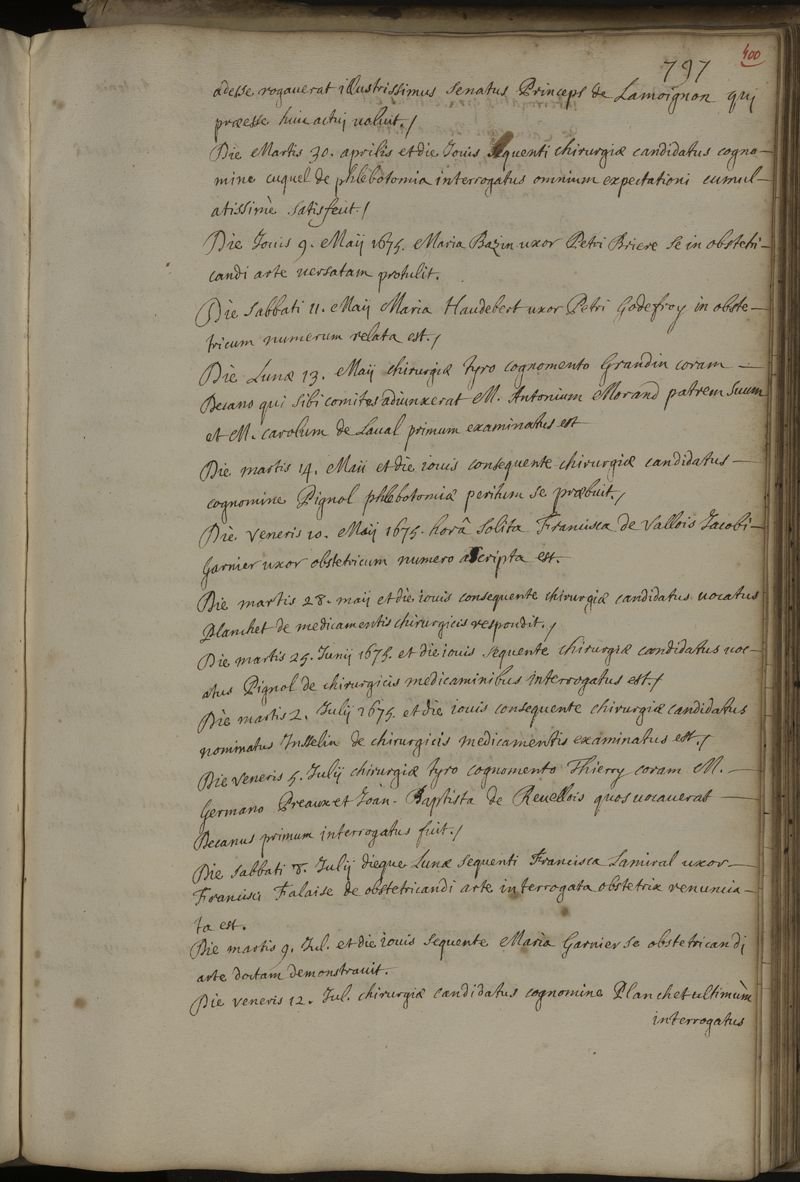 400
797
adesse rogauerat illustrissimus Senatus Princeps de Lamoignon qui
præesse huic actuj uoluit./
Die Martis 30. aprilis et die Jouis sequenti chirurgiæ candidatus cogno-
mine cuquel de phlebotomia interrogatus omnium expectationi cumul-
atissimè satisfecit./
Die Jouis 9. Maij 1675. Maria Bazin uxor Petri Briere se in obstetri-
candi arte uersatam protulit.
Die Sabbati 11. Maij Maria Haudebert uxor Petri Godefroy in obste-
tricum numerum relata est./
Die Lunæ 13. Maij chirurgiæ tyro cognomento Grandin coram
Decano qui sibi comites adiunxerat M. Antonium Morand patrem suum
et M. carolum de Laual primum examinatus est
Die martis 14. Maii et die iouis consequente chirurgiæ candidatus
cognomine Pignol phlebotomiæ peritum se præbuit./
Die Veneris 10. Maij 1675. horâ solita Francisca de Vallois Jacobi
Garnier uxor obstetricum numero ascripta est.
Die martis 28. maij et die iouis consequente chirurgiæ candidatus uocatus
Planchet de medicamentis chirurgicis respondit./
Die martis 25. Junij 1675. et die iouis sequente chirurgiæ candidatus uoc-
atus Pignol de chirurgicis medicaminibus interrogatus est./
Die martis 2. Julij 1675. et die iouis consequente chirurgiæ candidatus
nominatus Insselin de chirurgicis medicamentis examinatus est./
Die Veneris 5. Julij chirurgiæ tyro cognomento Thierry coram M.
Germano Preaux et Joan- Baptista de Reuellois quos uocauerat
Decanus primum interrogatus fuit./
Die Sabbati 8. Julij dieque Lunæ sequenti Francisca Lamiral uxor
Francisci Falaise de obstetricandi arte interrogata obstetrix renuncia-
ta est.
Die martis 9. Jul. et die iouis sequente Maria Garnier se obstetricandj
arte doctam demonstrauit.
Die Veneris 12. Jul. chirurgiæ candidatus cognomine Planchet ultimùm
interrogatus